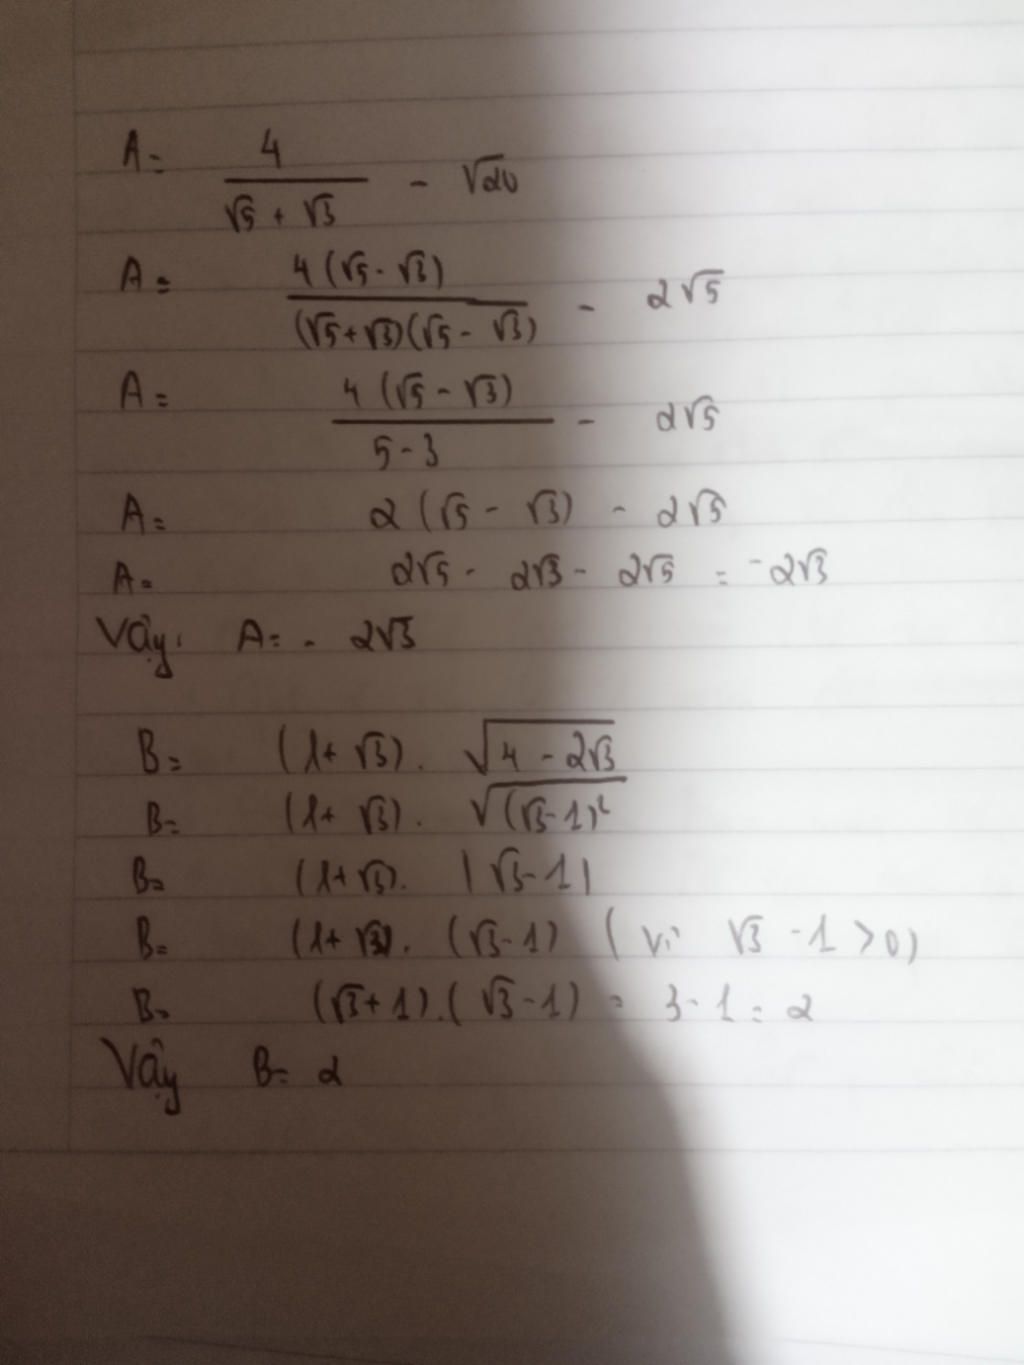 A = 4/(√5 + √3) - √20
A = 4(√5 - √3)/((√5+√3)(√5 - √3)) - 2√5
A = 4(√5 - √3)/(5-3) - 2√5
A = 2(√5 - √3) - 2√5
A = 2√5 - 2√3 - 2√5 = -2√3
Vậy: A = - 2√3
B = (1+√3). √(4 - 2√3)
B = (1+√3). √((√3-1)²)
B = (1+√3). |√3-1|
B = (1+√3). (√3-1) (vì √3 -1 >0)
B = (√3+1).(√3-1) = 3-1 = 2
Vậy B = 2